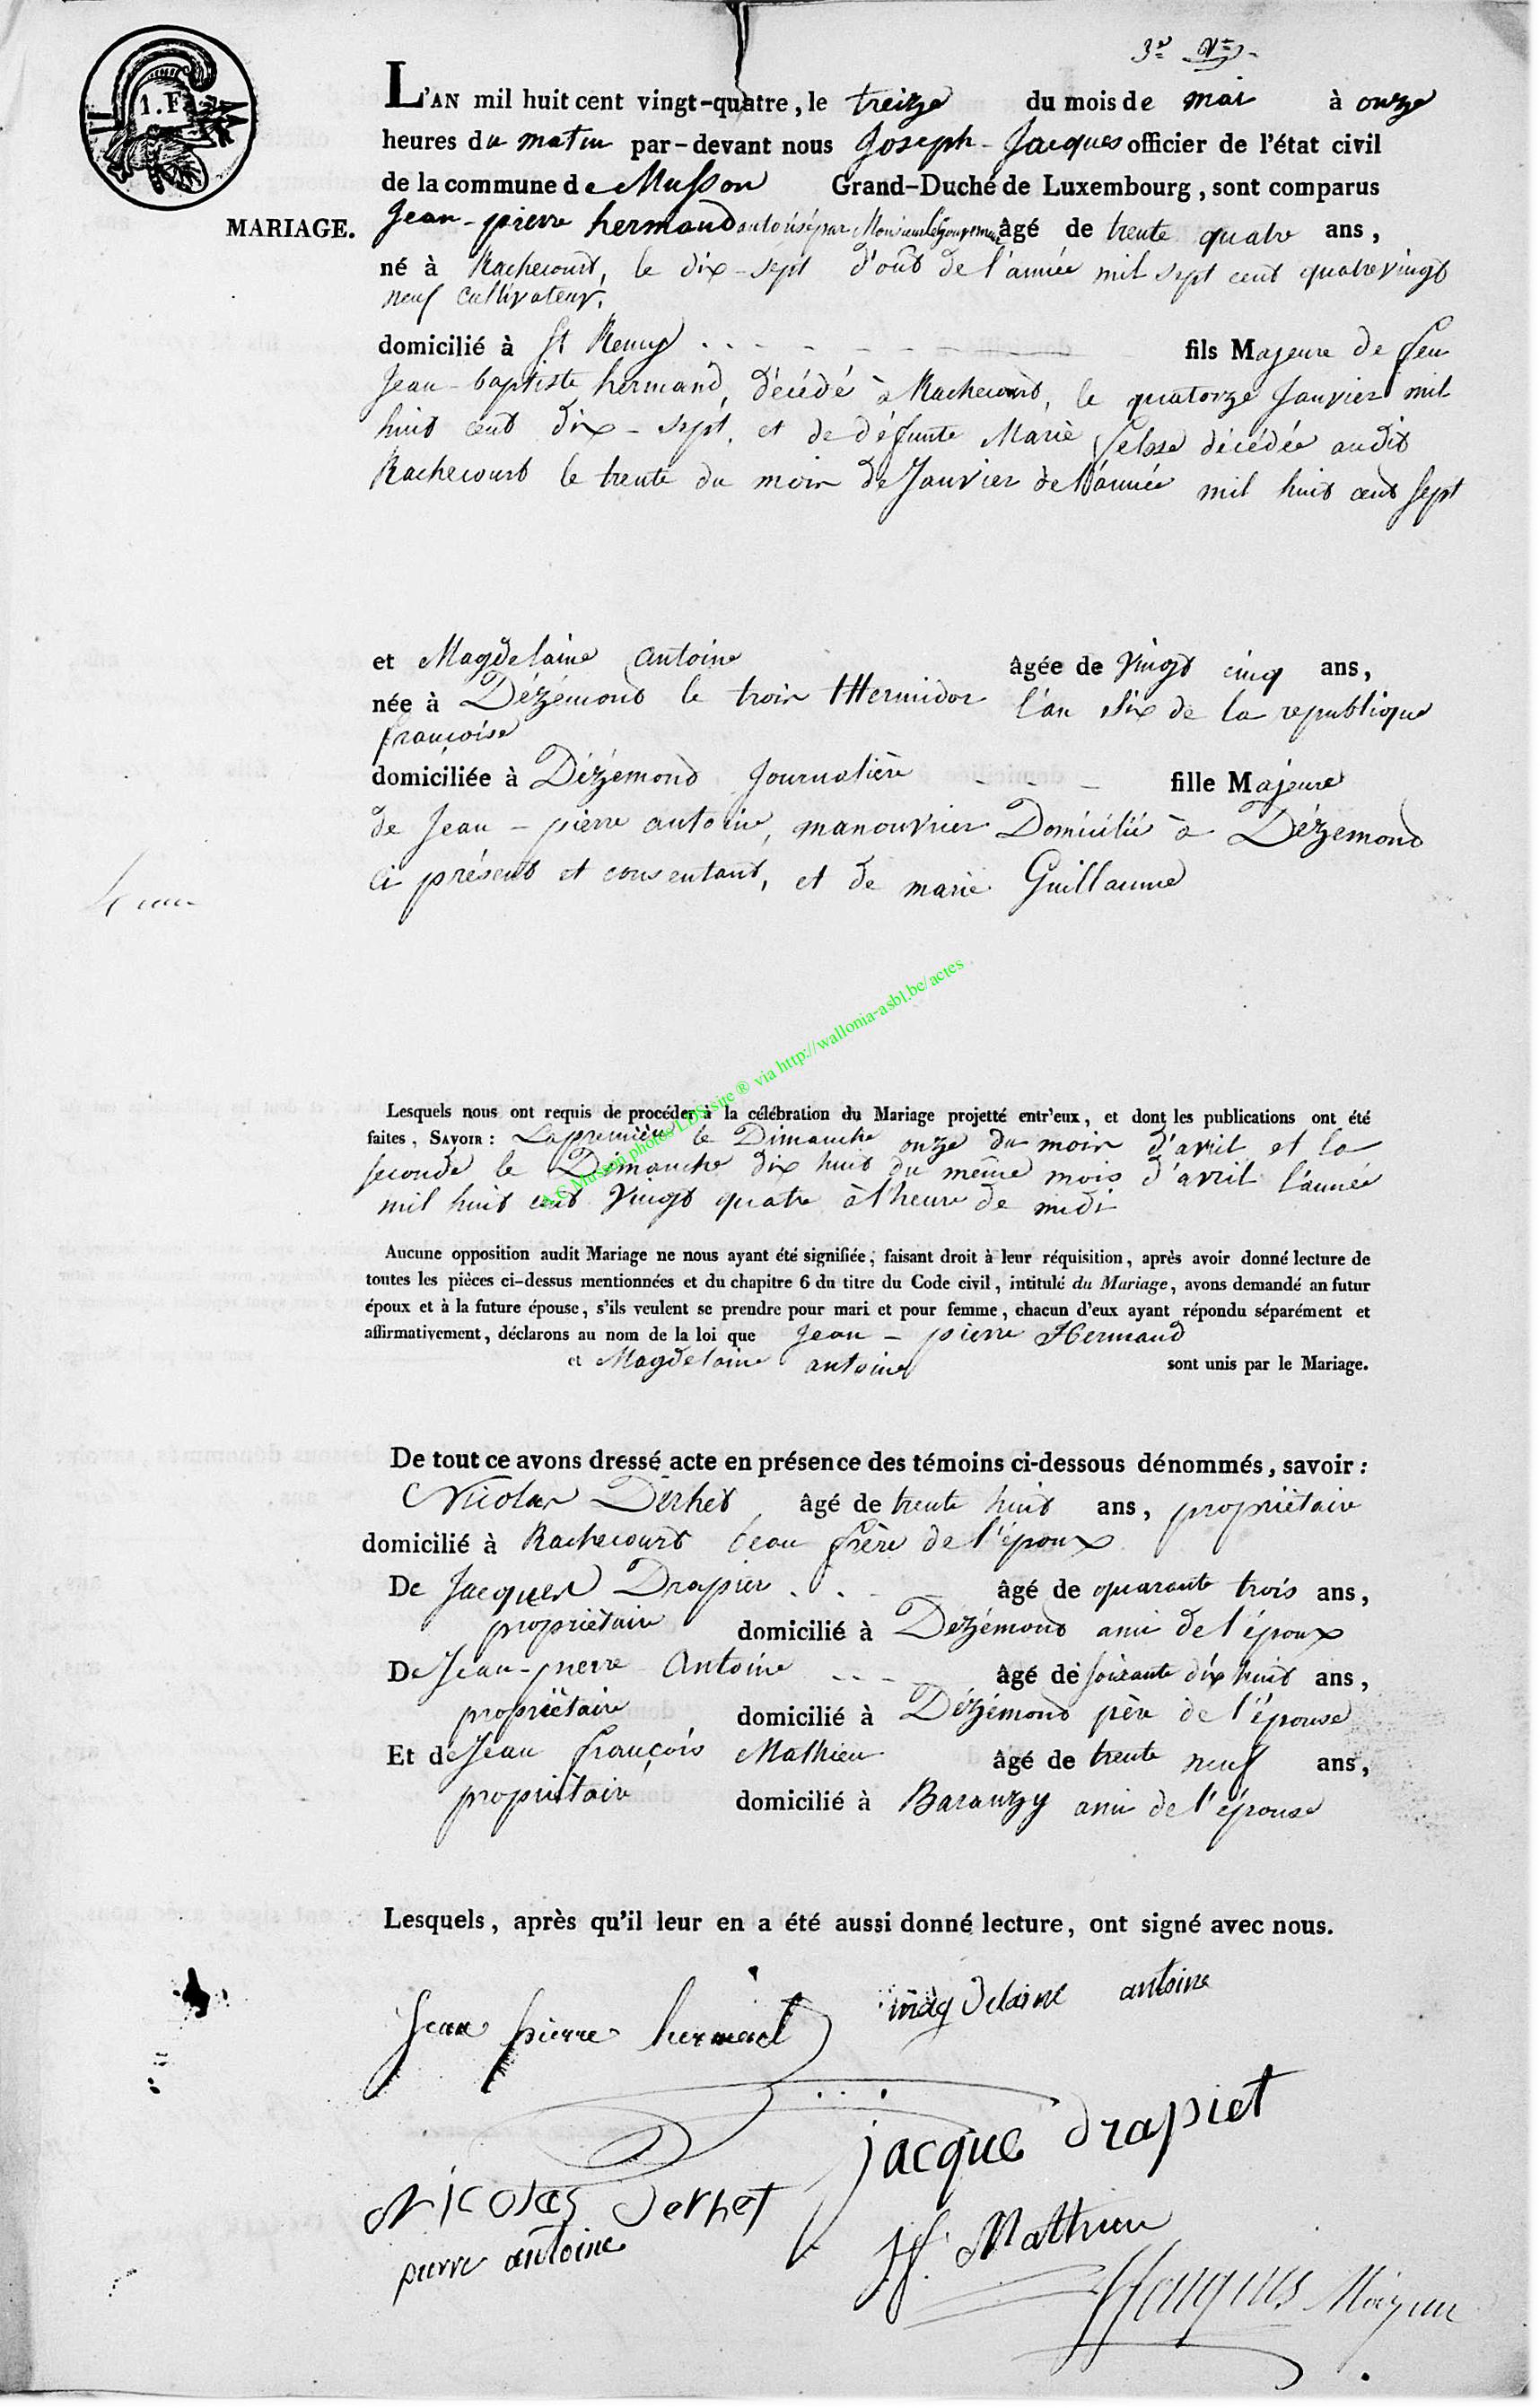 3e Von
1. F.
L'AN mil huit cent vingt-quatre, le treize du mois de mai à onze
heures du matin par-devant nous Joseph - Jacques officier de l'état civil
de la commune de Musson Grand-Duché de Luxembourg, sont comparus
MARIAGE.
Jean - pierre hermand autorisé par Monsieur le gouverneur âgé de trente quatre ans,
né à Rachecourt, le dix - sept d'out de l'année mil sept cent quatre vingt
neuf cultivateur,
domicilié à St Remy fils Majeure de feu
Jean - baptiste hermand, décédé à Rachecourt, le quatorze Janvier mil
huit cent dix - sept, et de défunte Marie décédée audit
Rachecourt le trente du mois de Janvier de l'année mil huit cent sept
et Magdelaine antoine âgée de vingt cinq ans,
née à Dézémond le trois thermidor l'an six de la republique
françoise
domiciliée à Dézémond Journalière fille Majeure
de Jean - pierre antoine, manouvrier Domicilié à Dézemond
ci présent et consentant, et de marie Guillaume
Lesquels nous ont requis de procéder à la célébration du Mariage projetté entr'eux, et dont les publications ont été
faites, SAVOIR : La première le Dimanche onze du mois d'avril et la
seconde le Dimanche dix huit du même mois d'avril l'année
mil huit cent vingt quatre à l'heure de midi
A.C. Musson photos LDS site ® via http://wallonia-asbl.be/actes
Aucune opposition audit Mariage ne nous ayant été signifiée; faisant droit à leur réquisition, après avoir donné lecture de
toutes les pièces ci-dessus mentionnées et du chapitre 6 du titre du Code civil, intitulé du Mariage, avons demandé an futur
époux et à la future épouse, s'ils veulent se prendre pour mari et pour femme, chacun d'eux ayant répondu séparément et
affirmativement, déclarons au nom de la loi que Jean - pierre Hermand
et Magdelaine antoine sont unis par le Mariage.
De tout ce avons dressé acte en présence des témoins ci-dessous dénommés, savoir :
Nicolas Derhet âgé de trente huit ans, propriétaire
domicilié à Rachecourt beau frère de l'époux
De Jacques Drapier âgé de quarante trois ans,
propriétaire domicilié à Dezémond ami de l'époux
De Jean-pierre Antoine âgé de soixante dix huit ans,
propriétaire domicilié à Dézémond père de l'épouse
Et de Jean françois Mathieu âgé de trente neuf ans,
propriétaire domicilié à Baranzy ami de l'épouse
Lesquels, après qu'il leur en a été aussi donné lecture, ont signé avec nous.
Jean pierre hermand magdelaine antoine
jacque drapiet
Nicolas Derhet
pierre antoine
J f. Mathieu
JJacques Mayeur